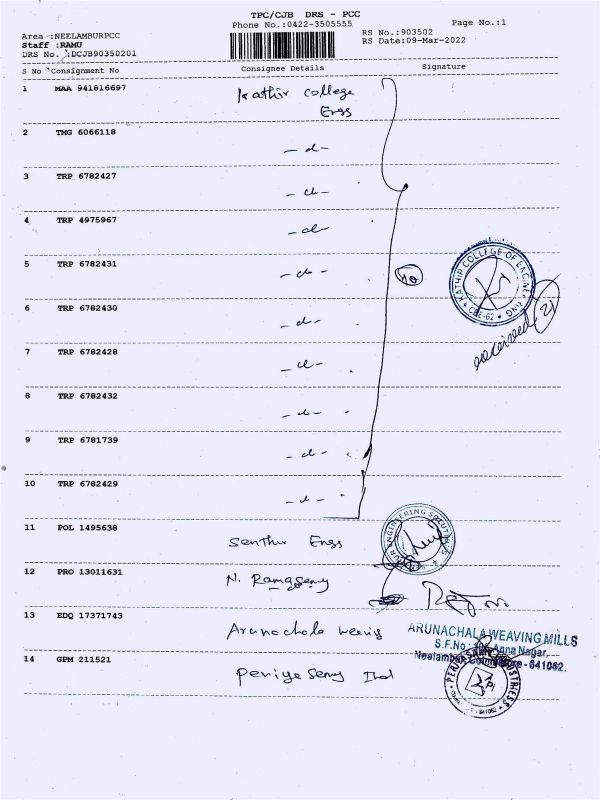 TPC/CJB DRS - PCC
Phone No.:0422-3505555
Page No.:1
Area :NEELAMBURPCC
Staff :RAMU
DRS No. :DCJB90350201
RS No.:903502
RS Date:09-Mar-2022
S No Consignment No Consignee Details Signature
1 MAA 941816697 Kathir College
Engg
2 TMG 6066118 - do -
3 TRP 6782427 - do -
4 TRP 4975967 - do -
5 TRP 6782431 - do -
10
KATHIR COLLEGE OF ENGINEERING
CBE-62
received 21
6 TRP 6782430 - do -
7 TRP 6782428 - do -
8 TRP 6782432 - do -
9 TRP 6781739 - do -
10 TRP 6782429 - do -
11 POL 1495638 Senthur Engg
ENGINEERING SOLUTIONS
12 PRO 13011631 N. Ramasamy
13 EDQ 17371743 Arunachala weavig
ARUNACHALA WEAVING MILLS
S.F.No : Anna Nagar,
Neelambur, Coimbatore - 641062.
14 GPM 211521 Periya Samy Ind